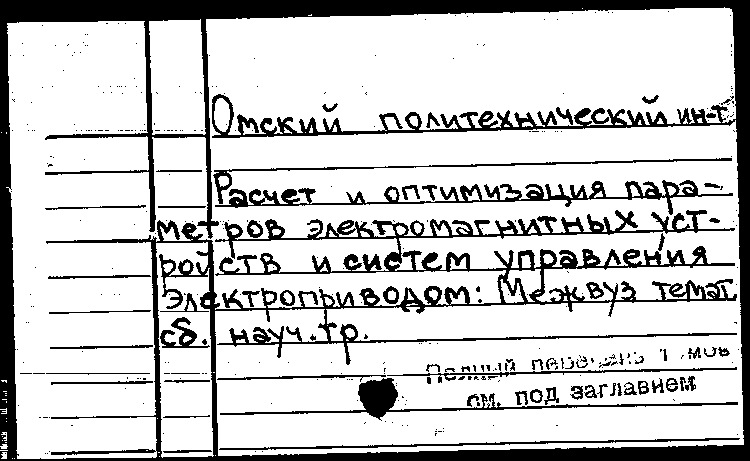 Омский политехнический ин-т
Расчет и оптимизация пара-
метров электромагнитных уст-
ройств и систем управления
электроприводом: Межвуз темат.
сб. науч. тр.
Полный перечень томов
см. под заглавием